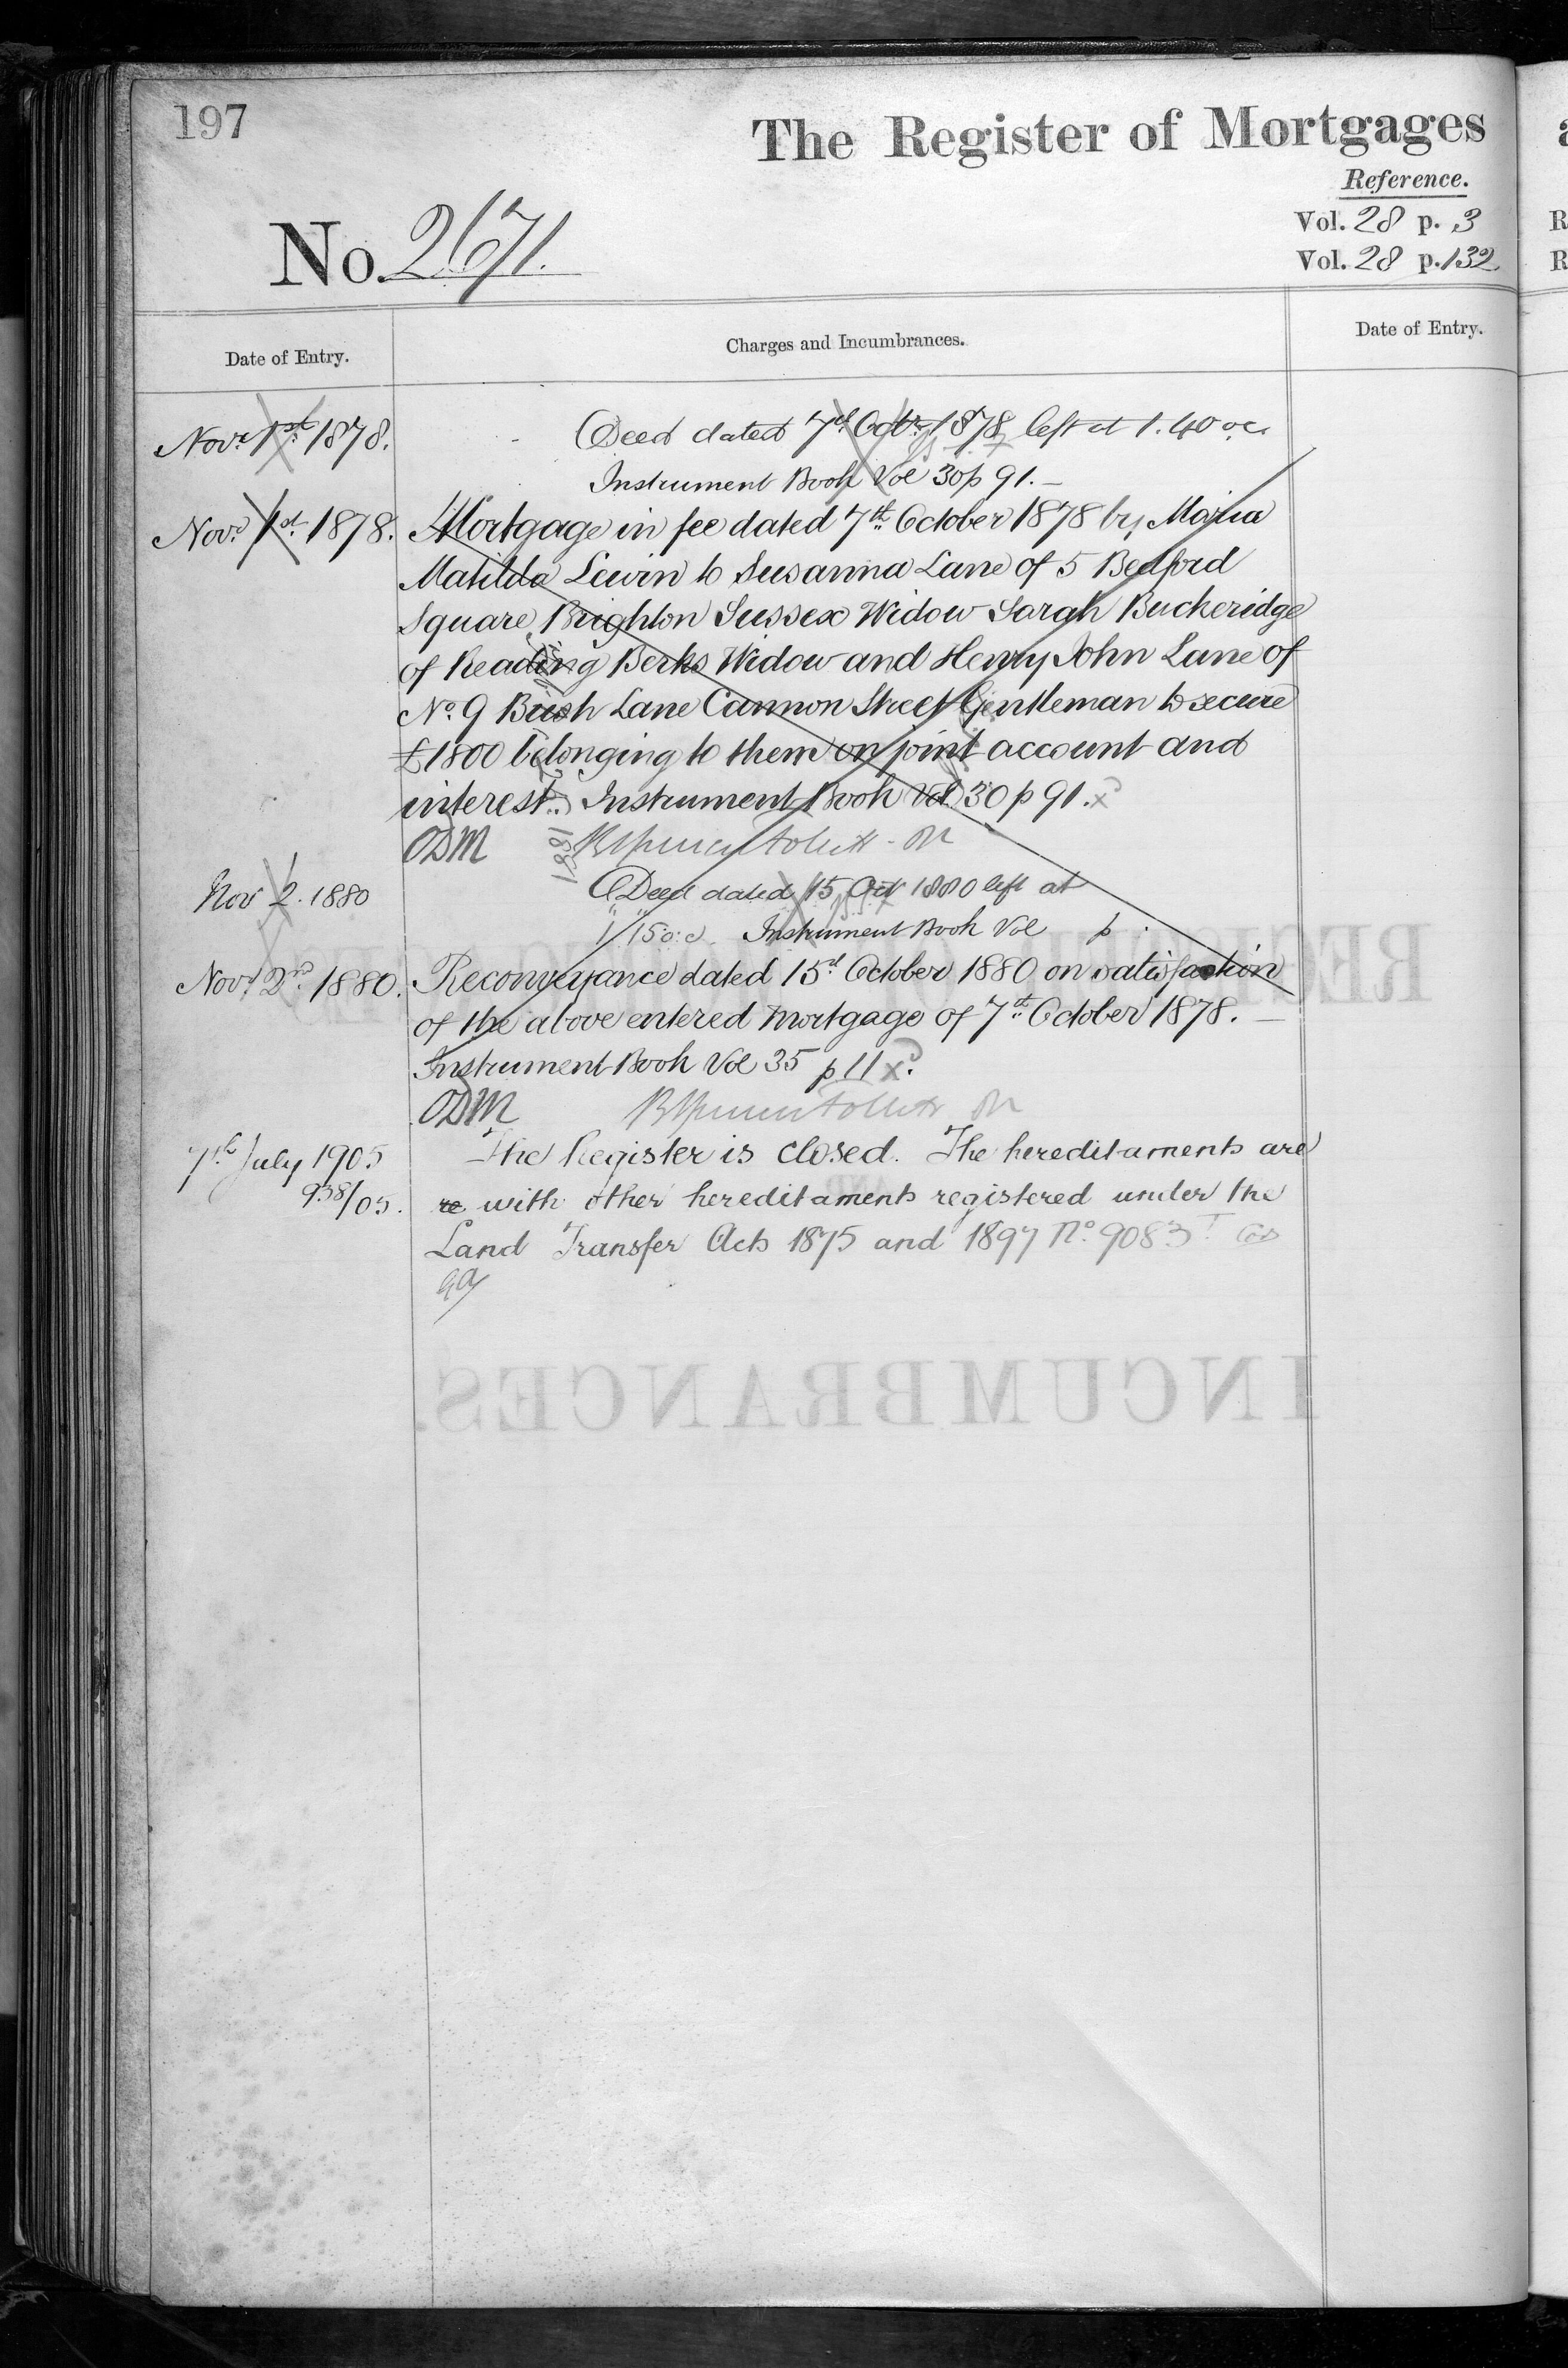 197
The Register of Mortgages
Reference.
Vol. 28 p. 3
Vol. 28 p. 132
No. 2671.
Date of Entry.
Charges and Incumbrances.
Date of Entry.
Novr 1st 1878.
Deed dated 7th Octr 1878 left at 1.40 oc
Instrument Book Vol 30 p 91.—
Novr 1st 1878.
Mortgage in fee dated 7th October 1878 by Maria
Matilda Lewin to Susanna Lane of 5 Bedford
Square Brighton Sussex Widow Sarah Buckeridge
of Reading Berks Widow and Henry John Lane of
No. 9 Bush Lane Cannon Street Gentleman to secure
£1800 belonging to them on joint account and
interest. Instrument Book Vol 30 p 91. x
ODM
1881
Nov 2. 1880
Deed dated 15 Oct 1880 left at
1 15 o:c. Instrument Book Vol p .
Novr 2nd 1880.
Reconveyance dated 15th October 1880 on satisfaction
of the above entered Mortgage of 7th October 1878. —
Instrument Book Vol 35 p 11 x.
ODM
7th July 1905
938/05.
The Register is closed. The hereditaments are
re with other hereditaments registered under the
Land Transfer Acts 1875 and 1897 No. 9083
INCUMBRANCES.